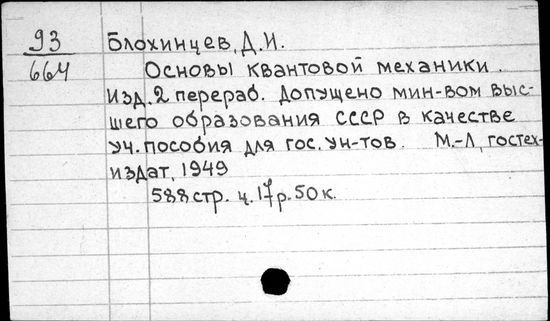 93
664
Блохинцев, Д.И.
Основы квантовой механики.
Изд. 2 перераб. Допущено мин-вом выс-
шего образования СССР в качестве
уч. пособия для гос. ун-тов. М.-Л, гостех-
издат, 1949
588 стр. ц. 17 р. 50 к.